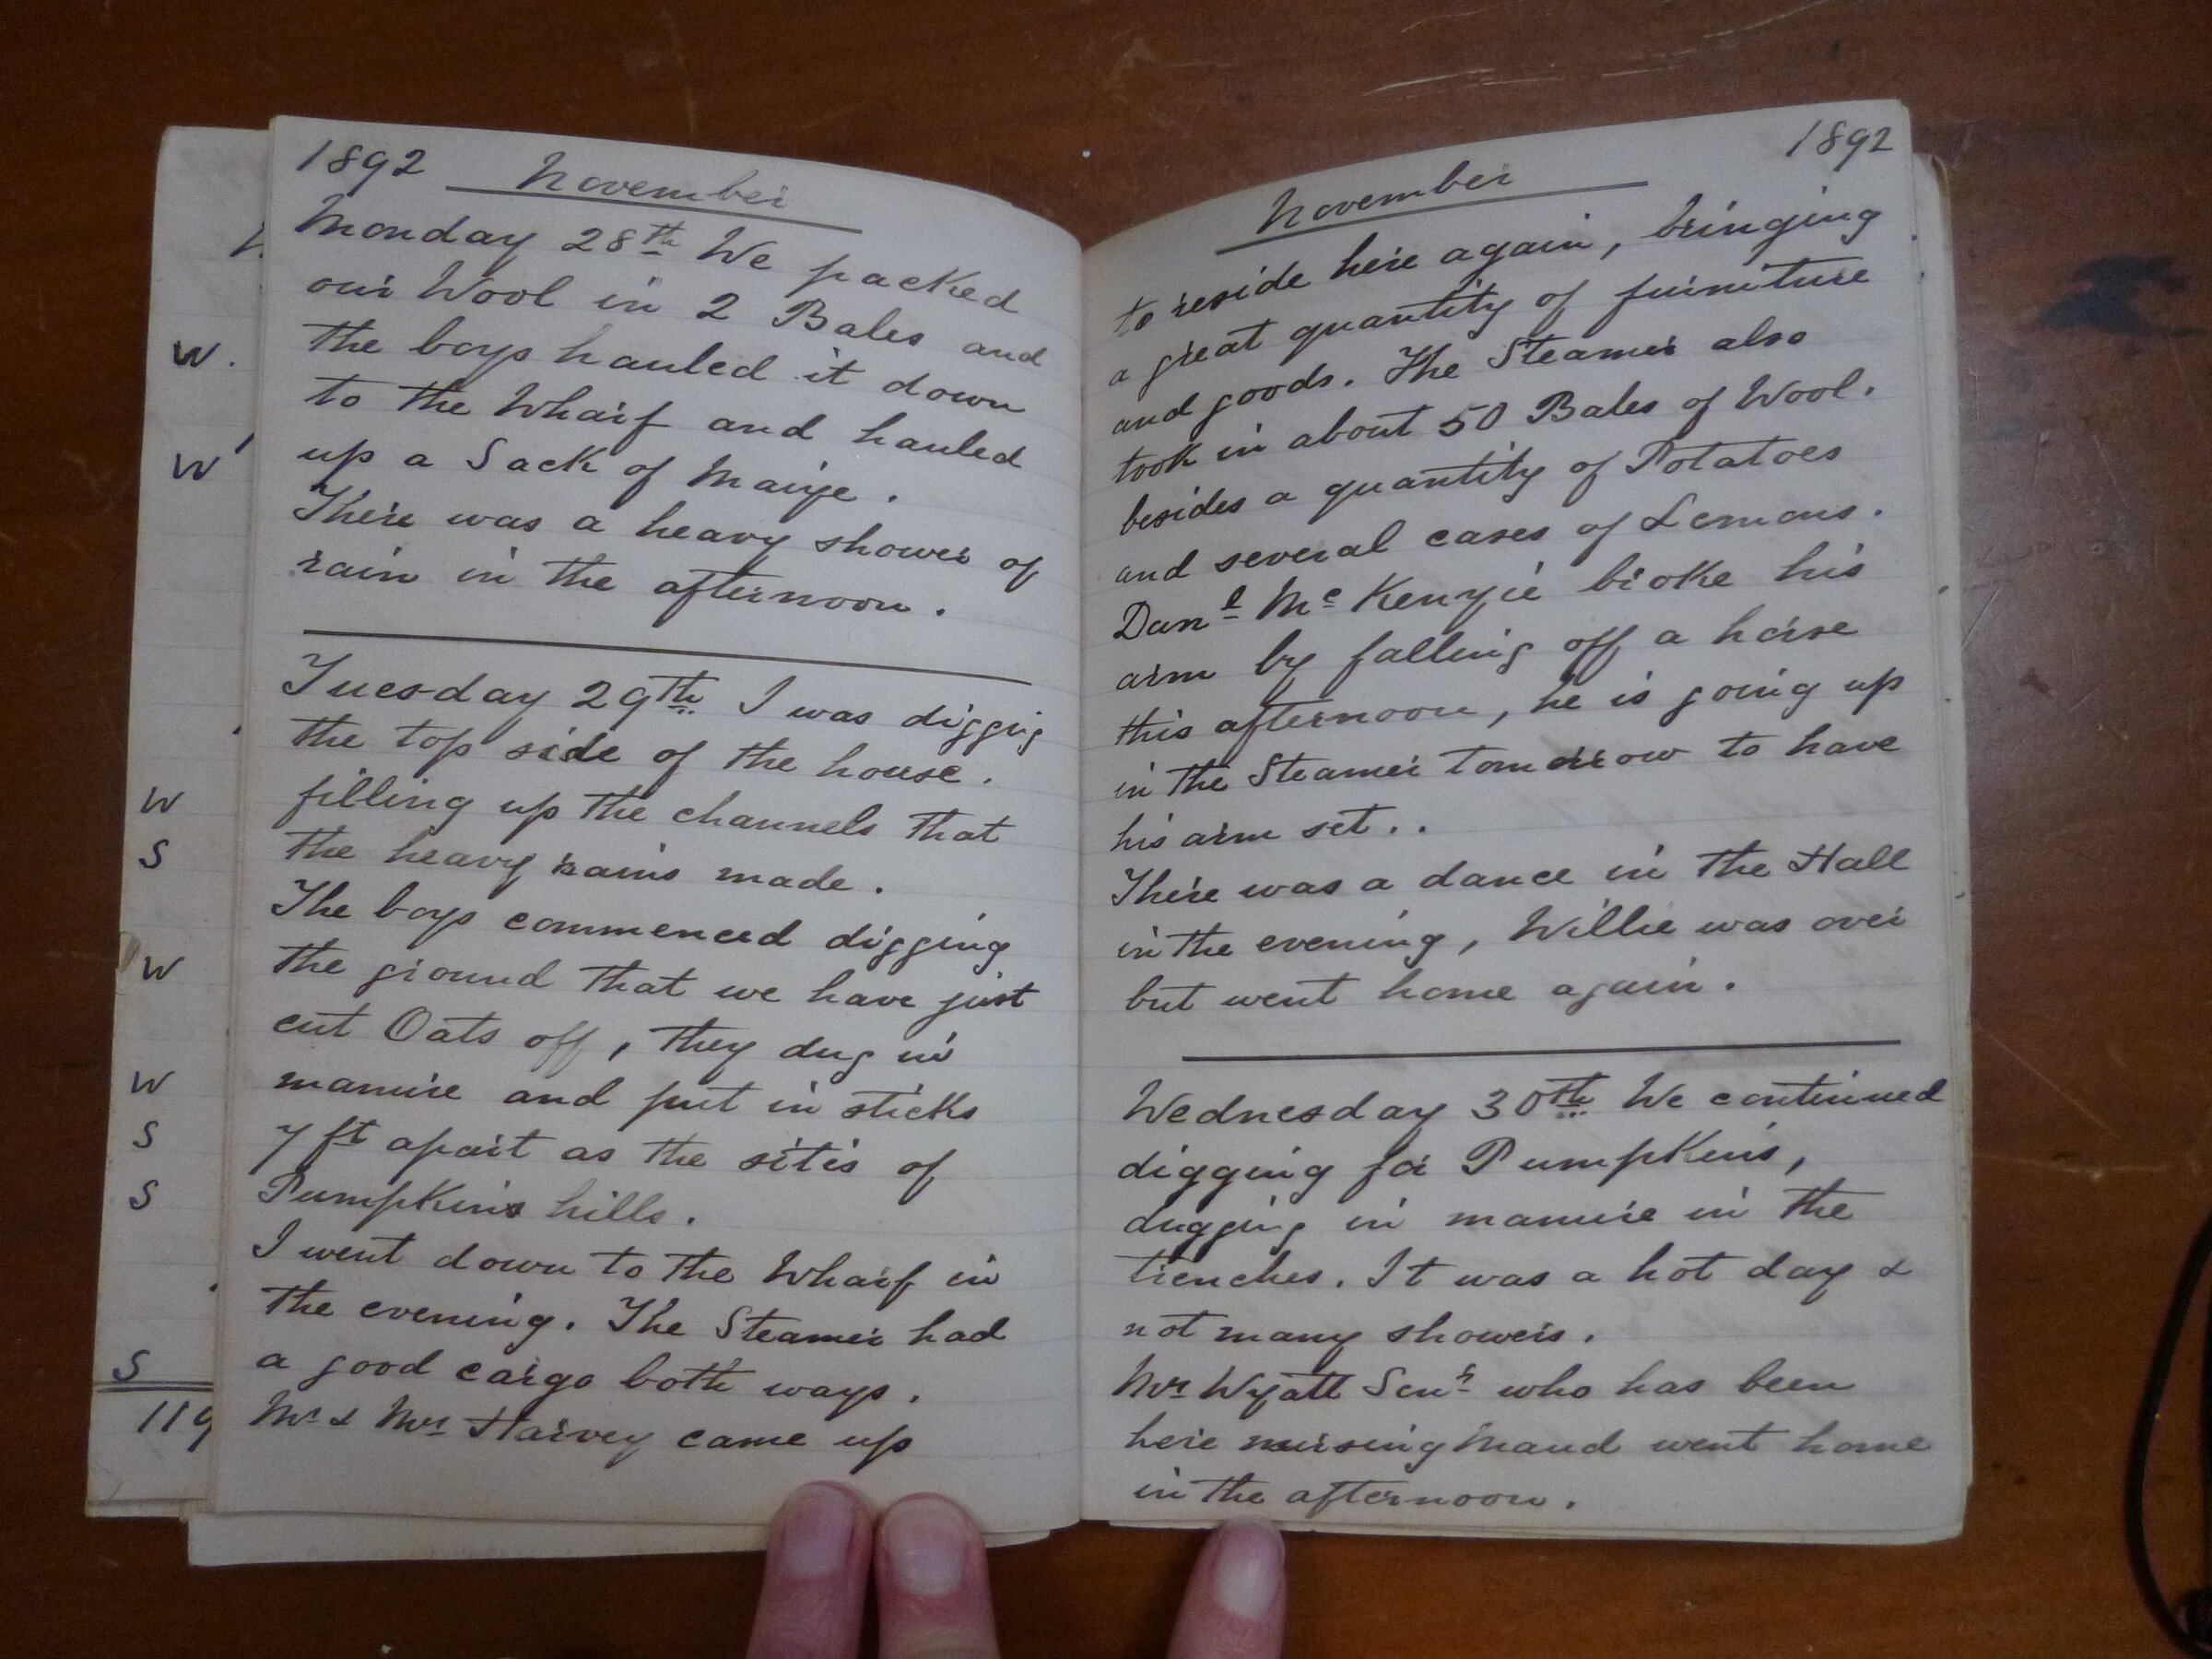 1892 November
Monday 28th We packed
our Wool in 2 Bales and
the boys hauled it down
to the Wharf and hauled
up a Sack of Maize.
There was a heavy shower of
rain in the afternoon.
Tuesday 29th I was digging
the top side of the house.
filling up the channels that
the heavy rains made.
The boys commenced digging
the ground that we have just
cut Oats off, they dug in
manure and put in sticks
7 ft apart as the sites of
Pumpkins hills.
I went down to the Wharf in
the evening. The Steamer had
a good cargo both ways.
Mr & Mrs Harvey came up
W.
W
W
S
W
W
S
S
S
119
November 1892
to reside here again, bringing
a great quantity of furniture
and goods. The Steamer also
took in about 50 Bales of Wool.
besides a quantity of Potatoes
and several cases of Lemons.
Danl McKenzie broke his
arm by falling off a horse
this afternoon, he is going up
in the Steamer tomorrow to have
his arm set..
There was a dance in the Hall
in the evening, Willie was over
but went home again.
Wednesday 30th We continued
digging for Pumpkins,
digging in manure in the
trenches. It was a hot day &
not many showers.
Mrs Wyatt Senr who has been
here nursing Maud went home
in the afternoon.